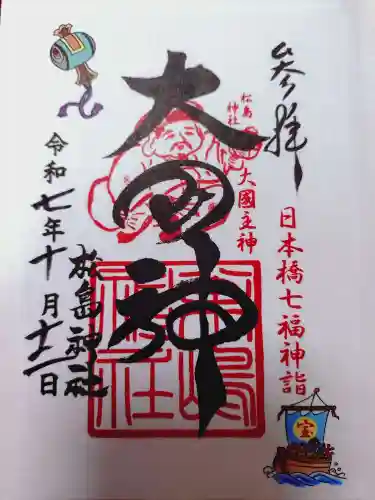 奉拝
日本橋七福神詣
宝
松島神社
大國主神
大国神
松島神社
松島神社
令和七年十月十二日